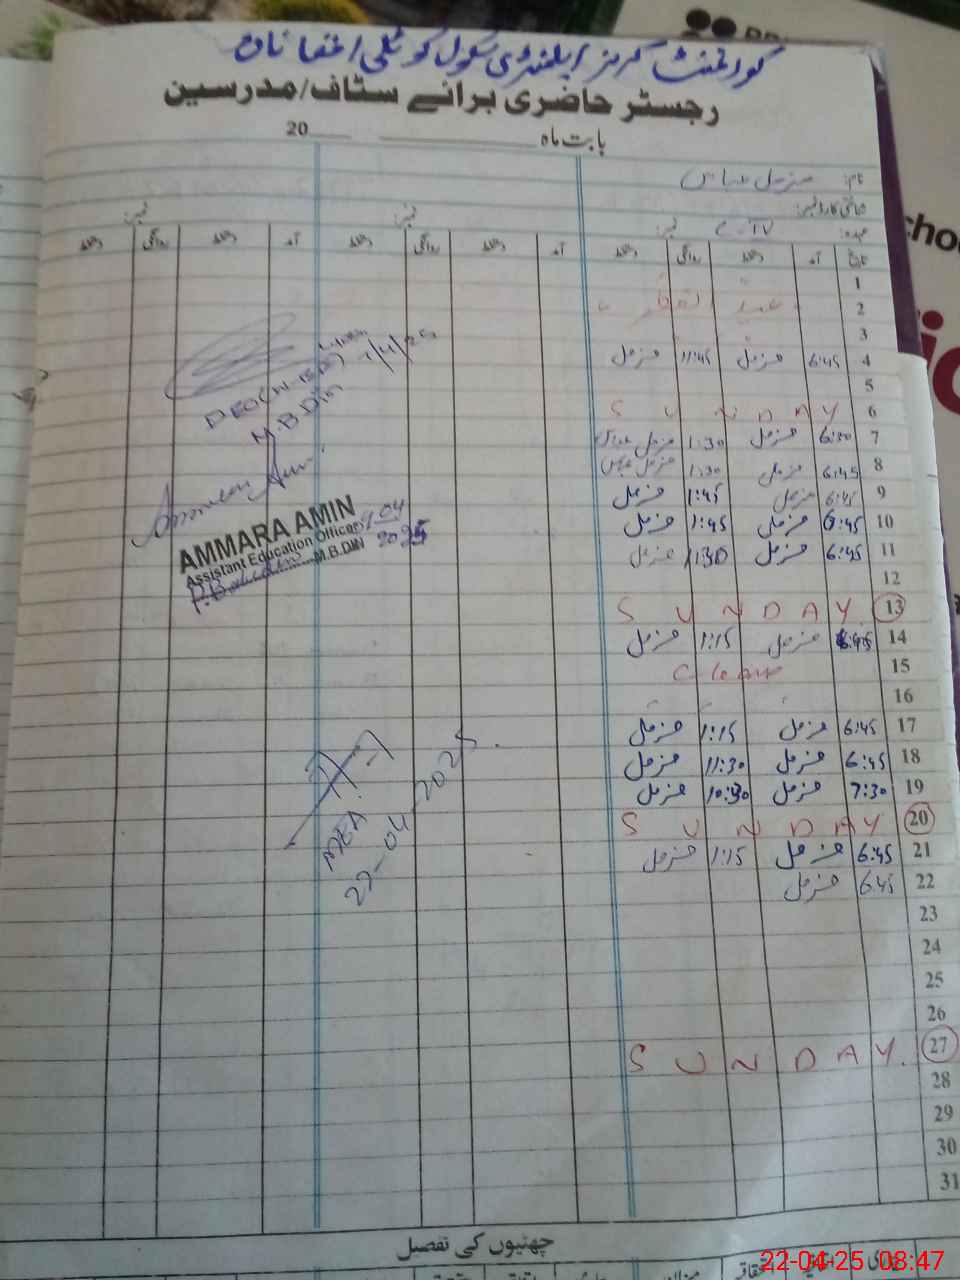 گورنمنٹ گرلز ایلمنٹری سکول کوٹلی افغاناں
رجسٹر حاضری برائے سٹاف/مدرسین
بابت ماہ ________ 20____
نام: مزمل عباس
شناختی کارڈ نمبر:
عہدہ: نمبر: نمبر: نمبر:
تاریخ آمد دستخط روانگی دستخط آمد دستخط روانگی دستخط آمد دستخط روانگی دستخط
1
2 عید الفطر
3
4 6:45 مزمل 11:45 مزمل
5
6 SUNDAY
7 6:30 مزمل 1:30 مزمل عباس
8 6:45 مزمل 1:30 مزمل عباس
9 6:45 مزمل 1:45 مزمل
10 6:45 مزمل 1:45 مزمل
11 6:45 مزمل 1:30 مزمل
12
13 SUNDAY
14 6:45 مزمل 1:15 مزمل
15
16
17 6:45 مزمل 1:15 مزمل
18 6:45 مزمل 11:30 مزمل
19 7:30 مزمل 10:30 مزمل
20 SUNDAY
21 6:45 مزمل 1:15 مزمل
22 6:45 مزمل
23
24
25
26
27 SUNDAY.
28
29
30
31
M.B.Din
AMMARA AMIN
Assistant Education Officer
M.B.DIN
2025
MEA
2025
چھٹیوں کی تفصیل
22-04-25 08:47